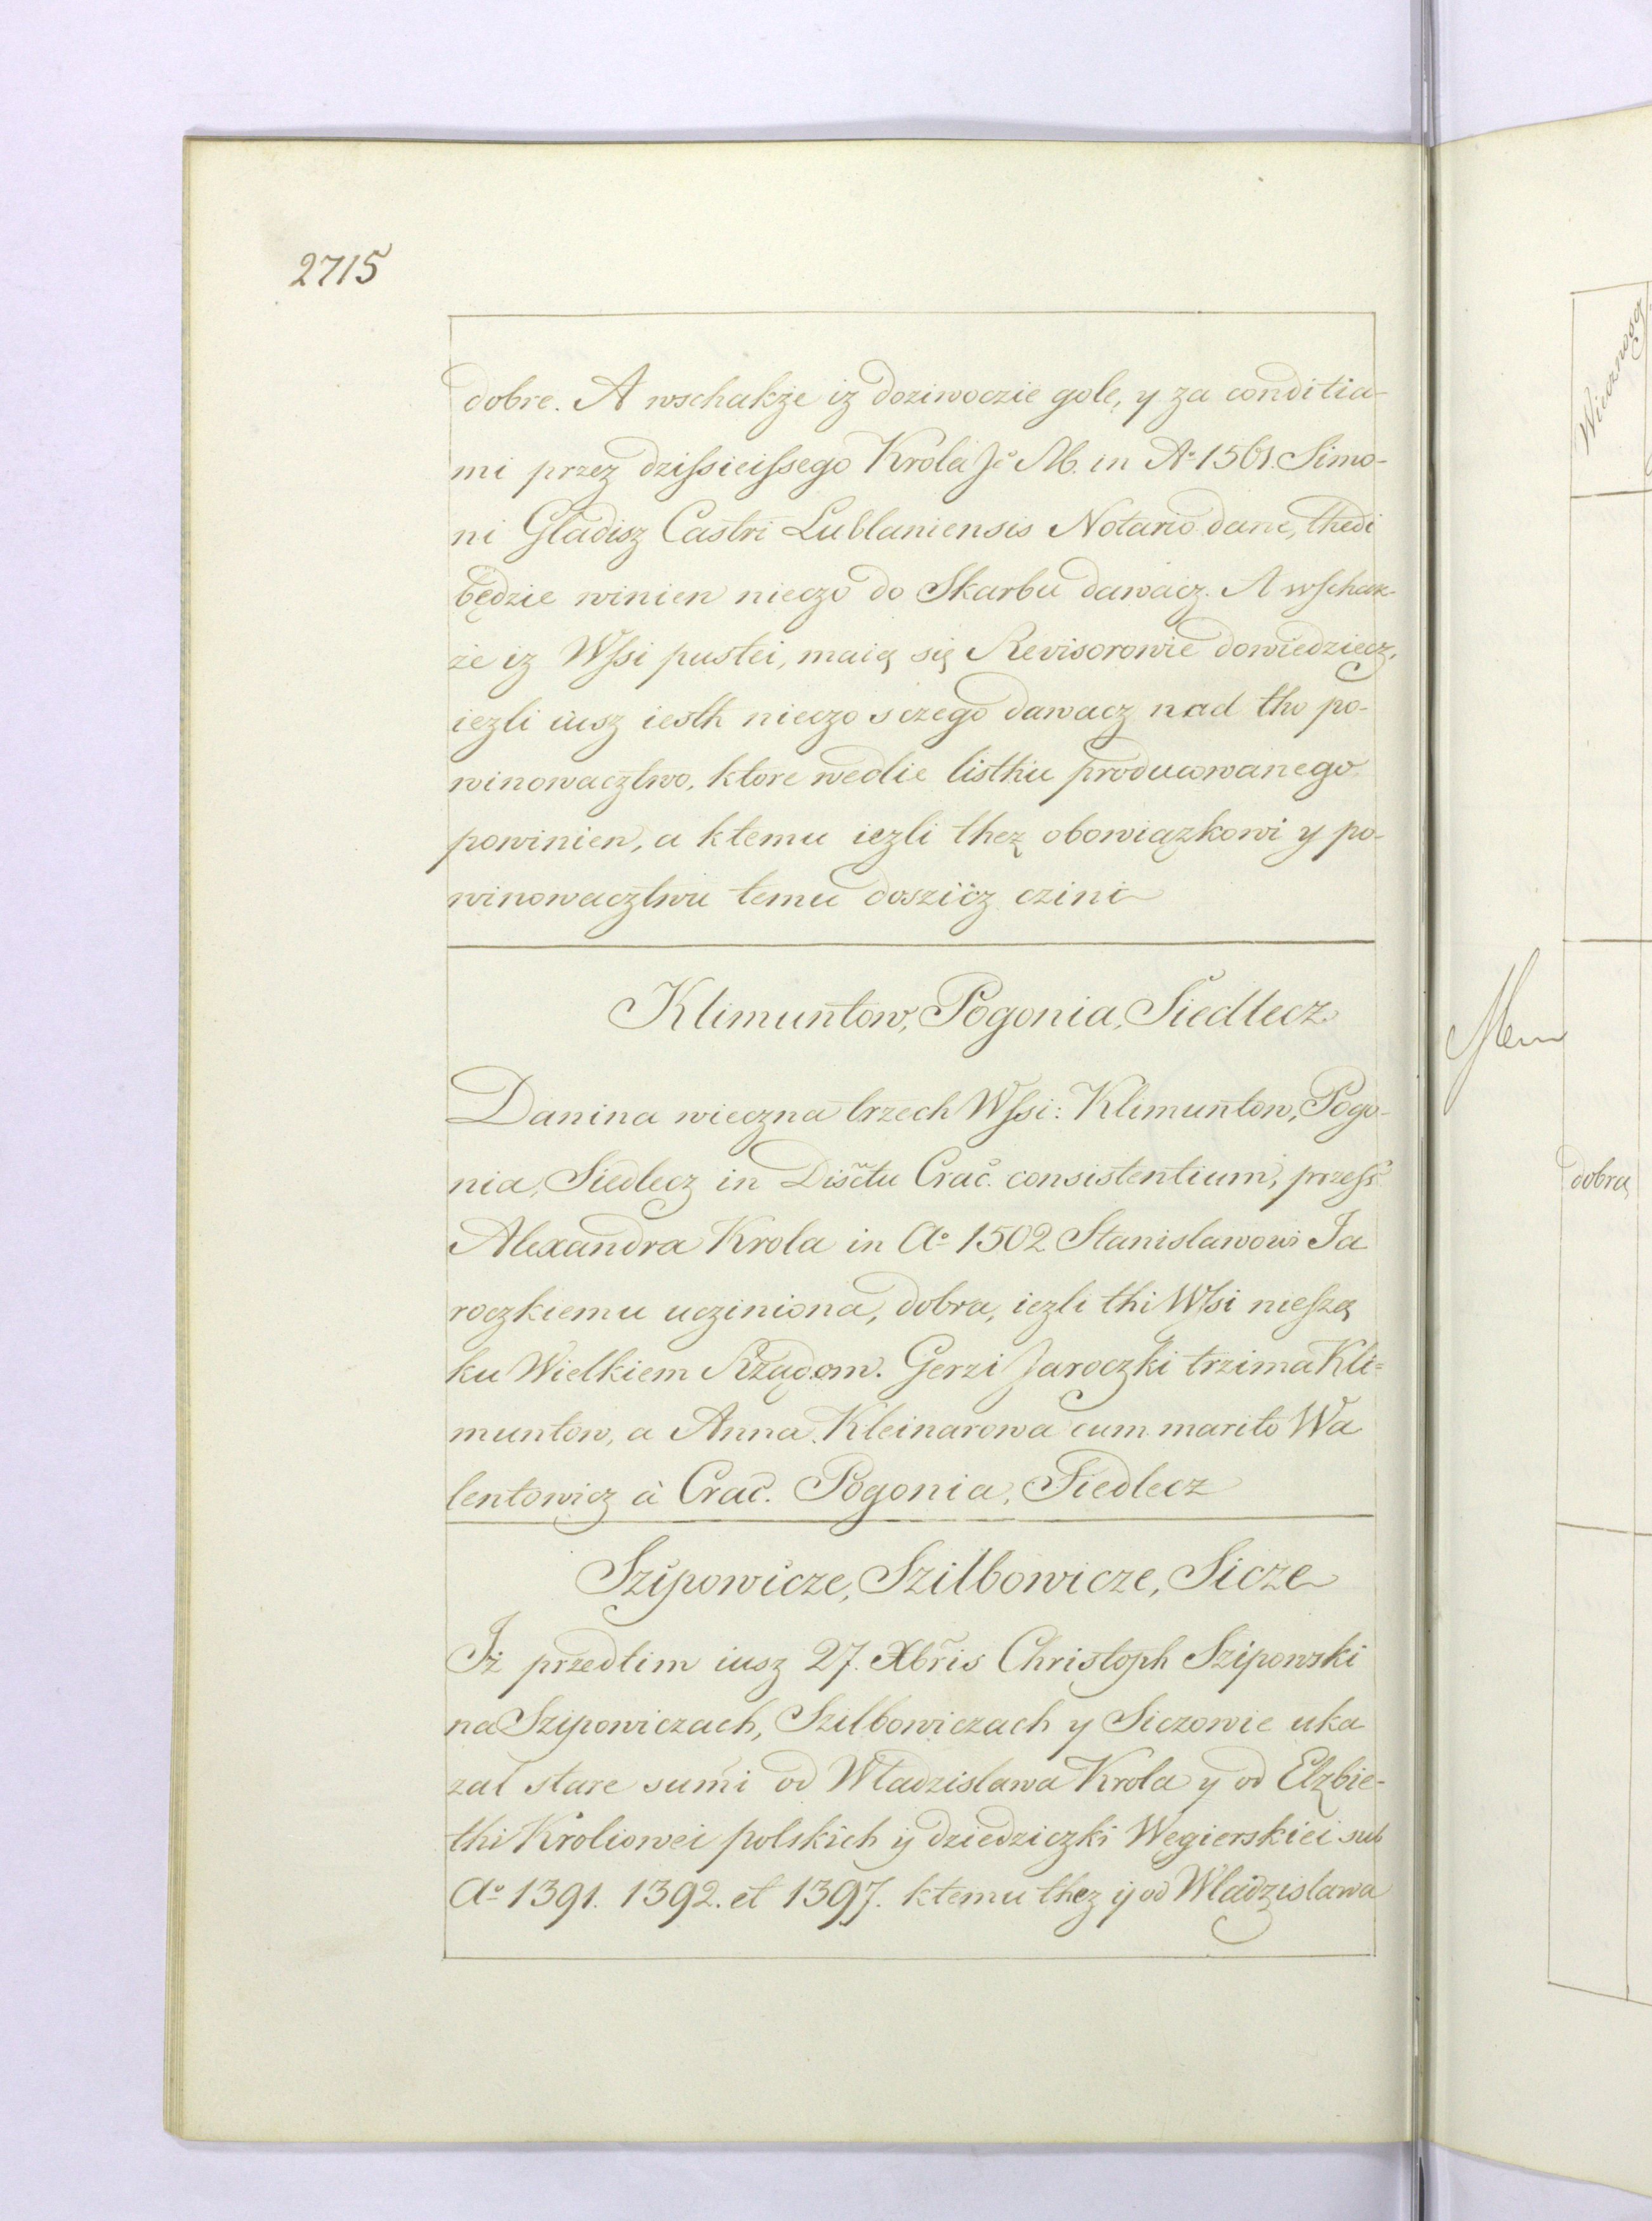 2715
dobre. A wschakże iz doziwoczie gole, y za conditia-
mi przez dzissieissego Króla Je° M. in A° 1561. Simo-
ni Gladisz Castri Lublaniensis Notario dane, thedi
będzie winien nieczo do Skarbu dawacz. A wschak-
że iz Wssi pustei, maią się Revisorowie dowiedziecz,
iezli iusz iesth nieczo sczego dawacz nad tho po-
winowacztwo, ktore wedlie listhu producowanego
powinien, a ktemu iezli thez obowiązkowi y po-
winowacztwu temu doszicz czini
Klimuntow, Pogonia, Siedlecz
Danina wieczna trzech Wssi: Klimuntow, Pogo-
nia, Siedlecz in Disctu Crac. consistentium, przess
Alexandra Krola in A° 1502 Stanislawowi Ja
roczkiemu ucziniona, dobra, iezli thi Wssi nieszą
ku Wielkiem Rządom. Gerzi Jaroczki trzima Kli=
muntow, a Anna Kleinarowa cum marito Wa
lentowicz à Crac. Pogonia, Siedlecz
Szipowicze, Szilbowicze, Sicze
Iż przedtim iusz 27. Xbris Christoph Szipowski
na Szipowiczach, Szilbowiczach y Siczowie uka
zał stare summi od Wladzislawa Krola y od Elzbie-
thi Kroliowei polskich ij dziedziczki Wegierskiei sub
A° 1391. 1392. et 1397. ktemu thez ij od Wladzislawa
dobra